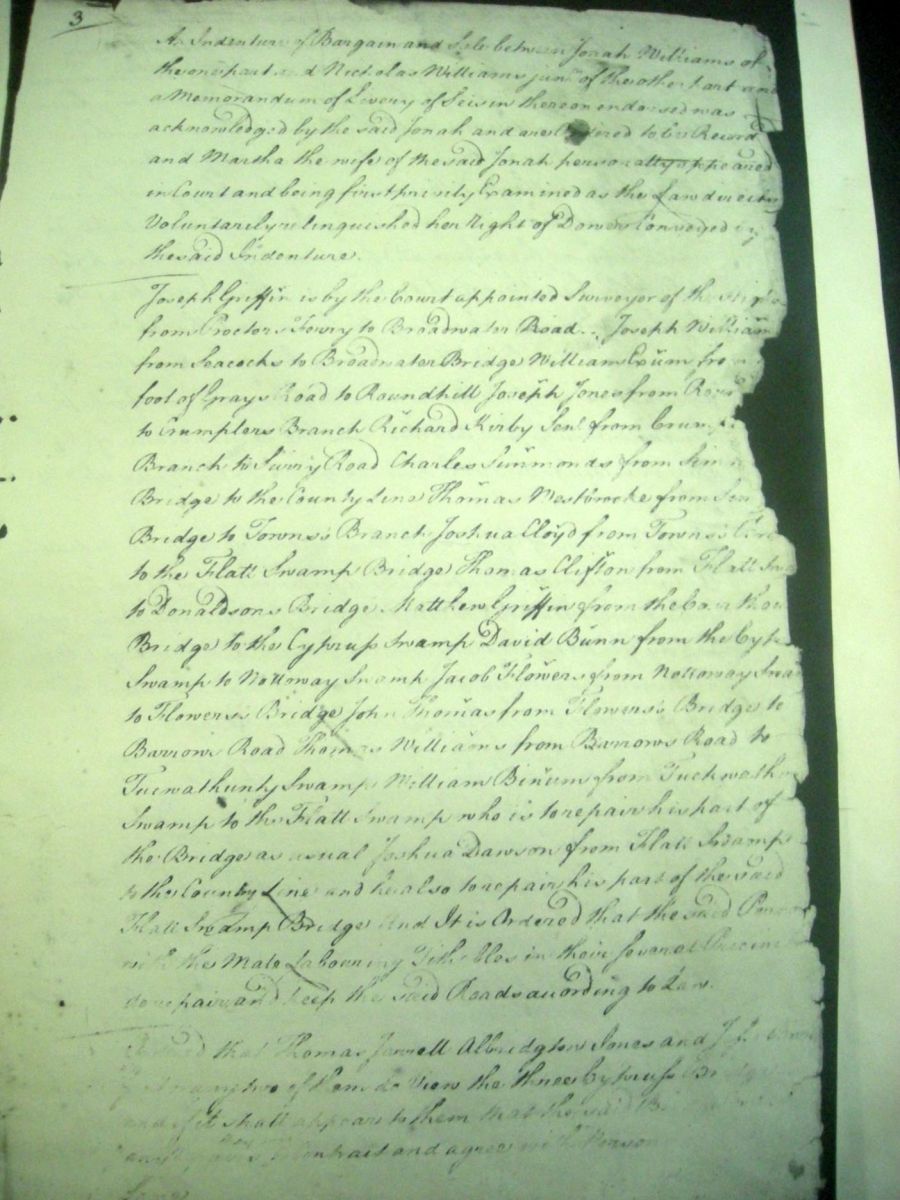 3
An Indenture of Bargain and Sale between Jonah Williams of
the one part and Nicholas Williams junr. of the other part and
a Memorandum of Livery of Seisin thereon endorsed was
acknowledged by the said Jonah and are Ordered to be Record
and Martha the wife of the said Jonah personally appeared
in Court and being first privily Examined as the Law directs
Voluntarily relinquished her Right of Dower Conveyed in
the said Indenture.
Joseph Griffin is by the Court appointed Surveyor of the
from Proctors Ferry to Broadwater Road Joseph William
from Seacocks to Broadwater Bridge William Exum fro
foot of Grays Road to Roundhill Joseph Jones from Roun
to Crumplers Branch Richard Kirby Senr. from Crump
Branch to Surry Road Charles Simmonds from
Bridge to the County Line Thomas Westbrooke from
Bridge to Towns's Branch Joshua Cloyd from Towns's
to the Flatt Swamp Bridge Thomas Clifton from Flatt Swa
to Donaldsons Bridge Matthew Griffin from the
Bridge to the Cyprus Swamp David Bunn from the Cyp
Swamp to Nottoway Swamp Jacob Flowers from Nottoway Swa
to Flowers's Bridge John Thomas from Flowers's Bridge to
Barrows Road Thomas Williams from Barrows Road to
Tucwathunty Swamp William Binum from Tuckwath
Swamp to the Flatt Swamp who is to repair his part of
the Bridge as usual Joshua Dawson from Flatt Swamp
to the County Line and he also to repair his part of the said
Flatt Swamp Bridge And It is Ordered that the said
with the Male Labouring Tithables in their several Precin
do repair and keep the said Roads according to Law.
Ordered that Thomas Jarrell Albridgton Jones and
any two of them do View the three Cypruss
and if it shall appear to them that the said
contract and agree with